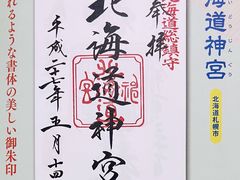 海道神宮
いどうじんぐう
北海道札幌市
北海道総鎮守
奉拝
北海道神宮
平成
年五月十四
れるような書体の美しい御朱印